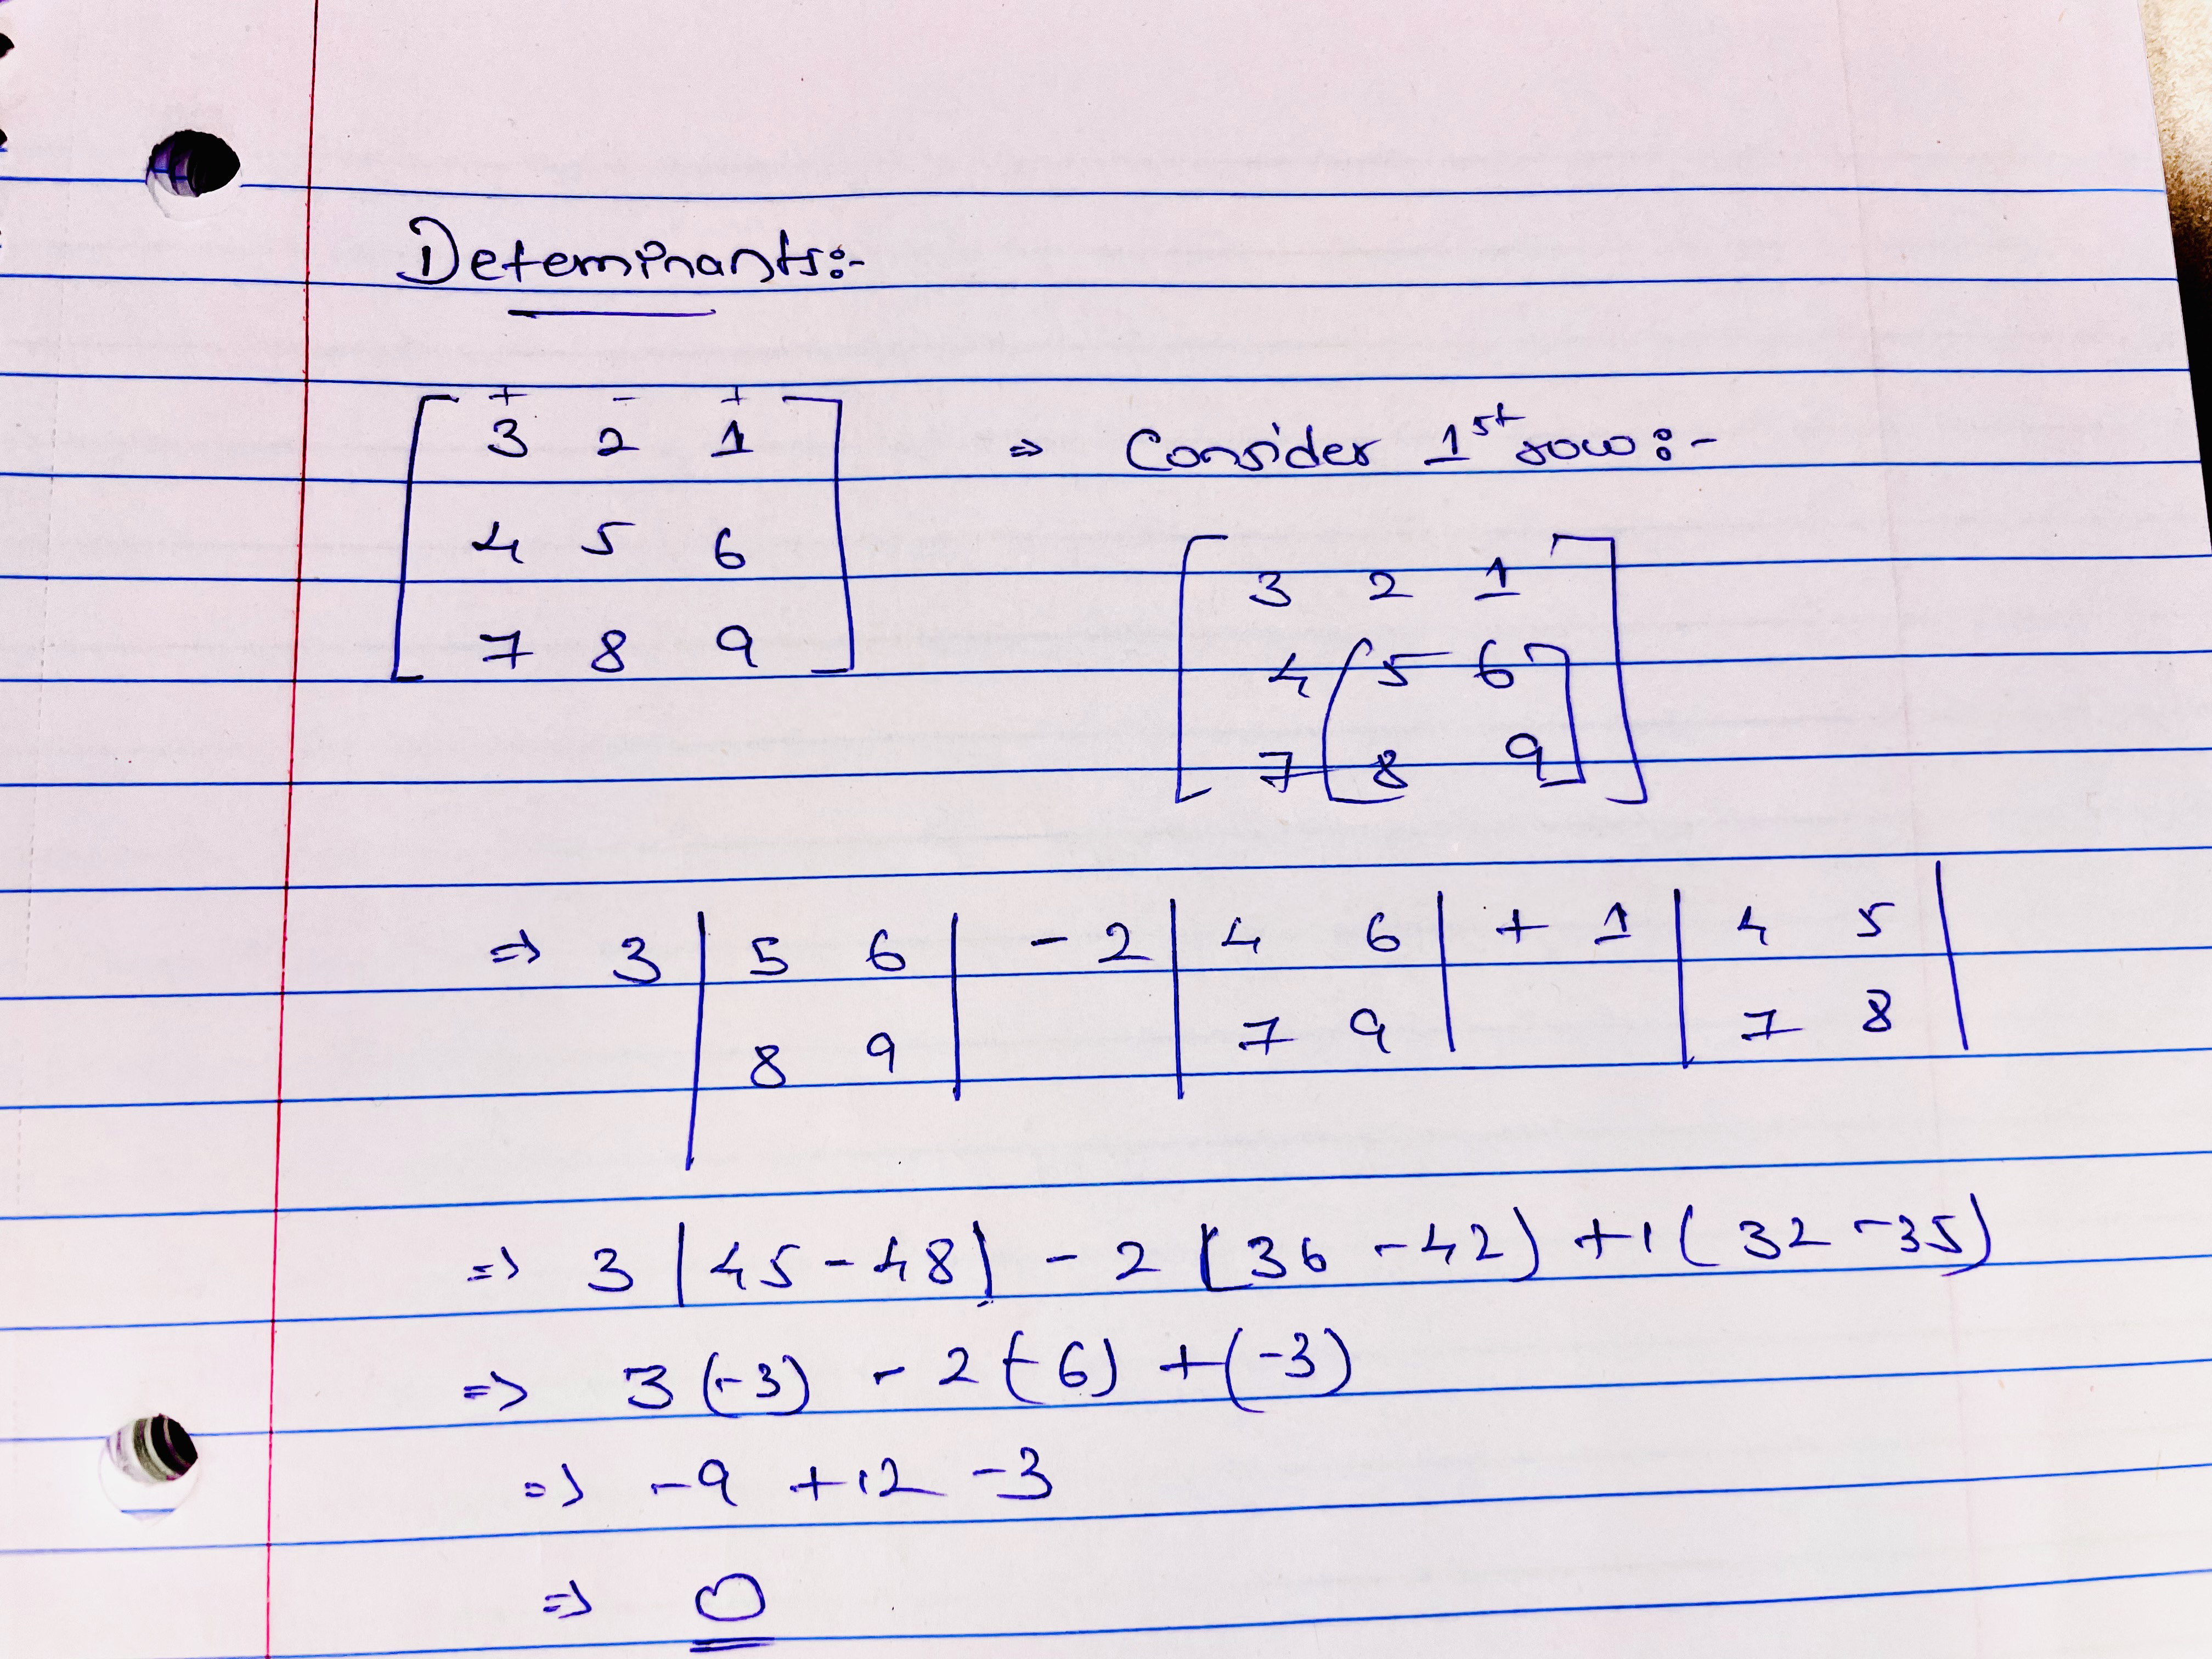 Determinants:-
+ - +
3 2 1
4 5 6
7 8 9
⇒ Consider 1st row:-
3 2 1
4 5 6
7 8 9
⇒ 3 | 5 6 | - 2 | 4 6 | + 1 | 4 5 |
8 9 7 9 7 8
⇒ 3 |45-48) - 2 [36 -42) +1( 32 -35)
⇒ 3 (-3) - 2 (-6) +(-3)
⇒ -9 +12 -3
⇒ 0